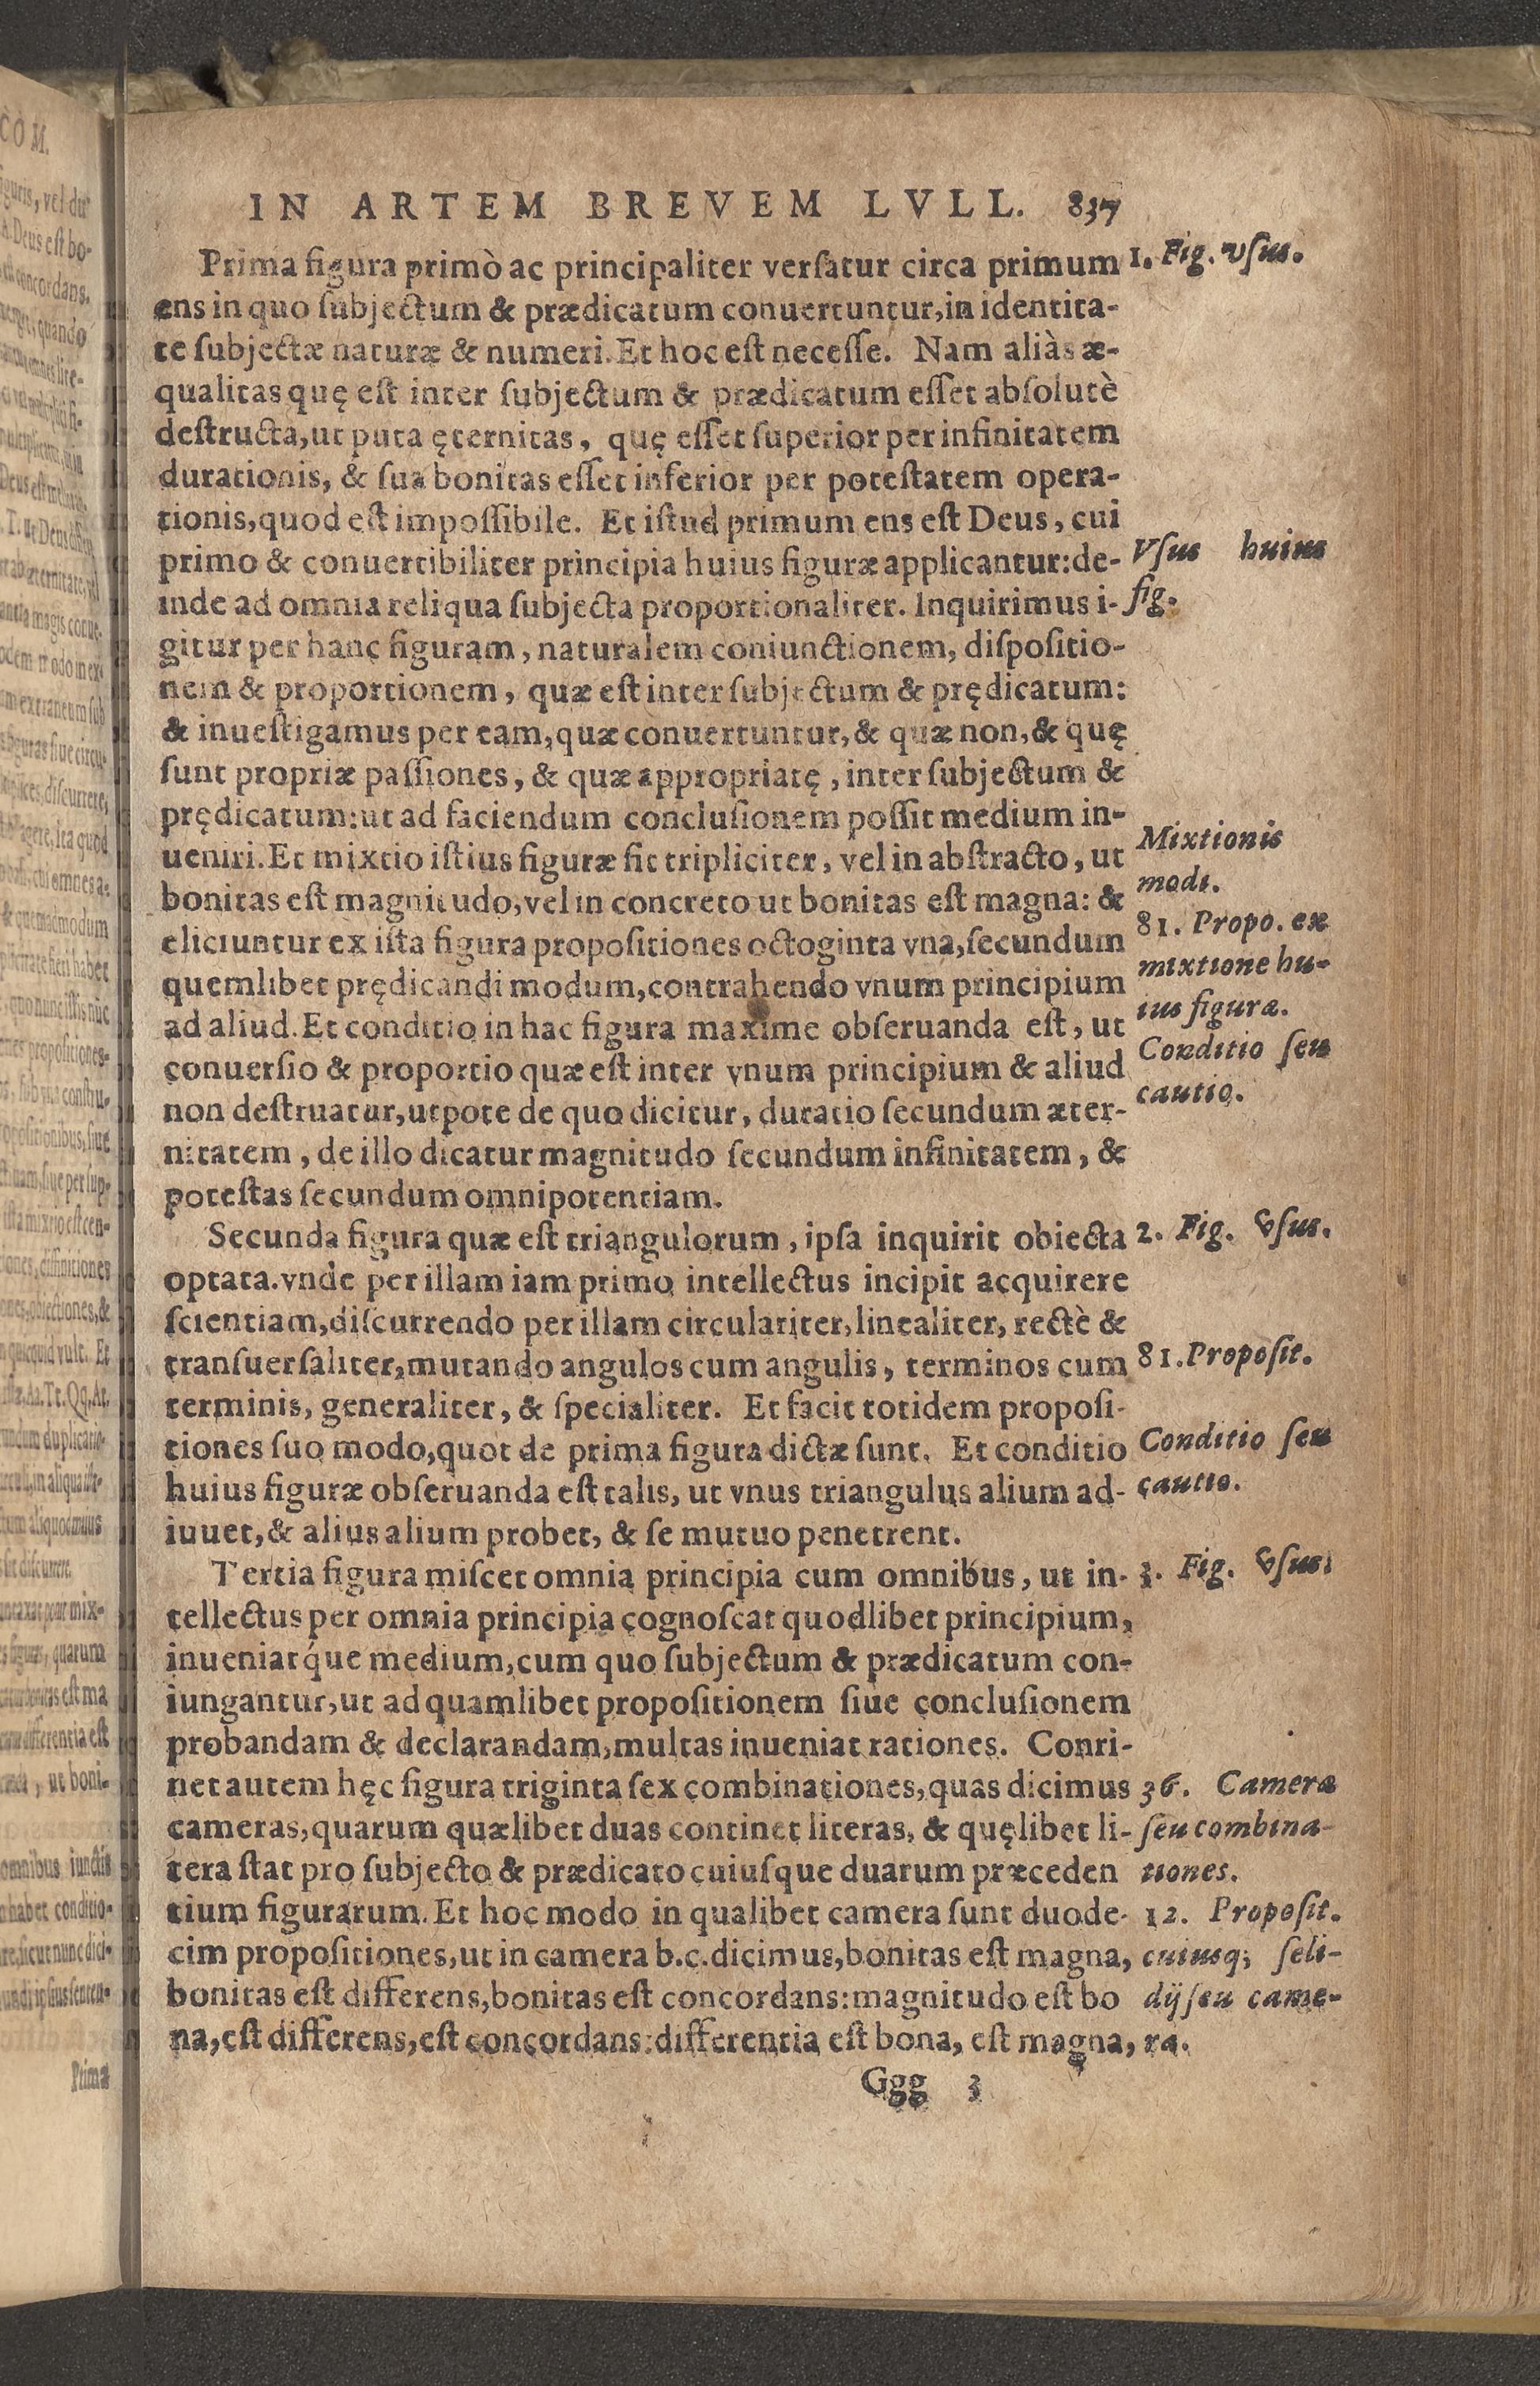 IN ARTEM BREVEM LVLL. 837
Prima figura primò ac principaliter versatur circa primum
ens in quo subjectum & prædicatum conuertuntur,in identita-
te subjectæ naturæ & numeri. Et hoc est necesse. Nam aliàs æ-
qualitas quę est inter subjectum & prædicatum esset absolutè
destructa,ut puta ęternitas, quę esset superior per infinitatem
durationis, & sua bonitas esset inferior per potestatem opera-
tionis,quod est impossibile. Et istud primum ens est Deus, cui
primo & conuertibiliter principia huius figuræ applicantur:de-
inde ad omnia reliqua subjecta proportionaliter. Inquirimus i-
gitur per hanc figuram, naturalem coniunctionem, dispositio-
nem & proportionem, quæ est inter subjectum & prędicatum:
& inuestigamus per eam,quæ conuertuntur,& quæ non,& quę
sunt propriæ passiones, & quæ appropriatę, inter subjectum &
prędicatum:ut ad faciendum conclusionem possit medium in-
ueniri. Et mixtio istius figuræ fit tripliciter, vel in abstracto, ut
bonitas est magnitudo,vel in concreto ut bonitas est magna: &
eliciuntur ex ista figura propositiones octoginta vna,secundum
quemlibet prędicandi modum,contrahendo vnum principium
ad aliud. Et conditio in hac figura maxime obseruanda est, ut
conuersio & proportio quæ est inter vnum principium & aliud
non destruatur,utpote de quo dicitur, duratio secundum æter-
nitatem, de illo dicatur magnitudo secundum infinitatem, &
potestas secundum omnipotentiam.
Secunda figura quæ est triangulorum, ipsa inquirit obiecta
optata. vnde per illam iam primo intellectus incipit acquirere
scientiam,discurrendo per illam circulariter,linealiter, rectè &
transuersaliter,mutando angulos cum angulis, terminos cum
terminis, generaliter, & specialiter. Et facit totidem proposi-
tiones suo modo,quot de prima figura dictæ sunt. Et conditio
huius figuræ obseruanda est talis, ut vnus triangulus alium ad-
iuuet,& alius alium probet, & se mutuo penetrent.
Tertia figura miscet omnia principia cum omnibus, ut in-
tellectus per omnia principia cognoscat quodlibet principium,
inueniatq́ue medium,cum quo subjectum & prædicatum con-
iungantur,ut ad quamlibet propositionem siue conclusionem
probandam & declarandam,multas inueniat rationes. Conti-
net autem hęc figura triginta sex combinationes,quas dicimus
cameras,quarum quælibet duas continet literas, & quęlibet li-
tera stat pro subjecto & prædicato cuiusque duarum præceden
tium figurarum. Et hoc modo in qualibet camera sunt duode-
cim propositiones,ut in camera b.c.dicimus,bonitas est magna,
bonitas est differens,bonitas est concordans:magnitudo est bo
na,est differens,est concordans:differentia est bona, est magna,
Ggg 3
1. Fig. vsus.
Vsus huius
fig.
Mixtionis
modi.
81. Propo. ex
mixtione hu-
ius figuræ.
Conditio seu
cautio.
2. Fig. vsus.
81. Proposit.
Conditio seu
cautio.
3. Fig. vsus.
36. Cameræ
seu combina-
tiones.
12. Proposit.
cuiusq; seli-
dij seu came-
ra.